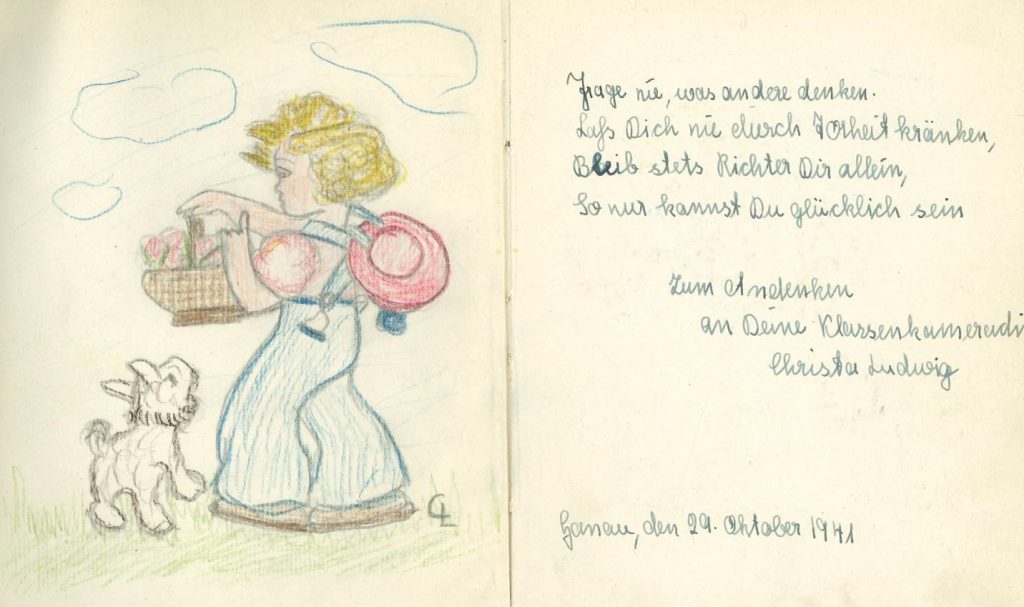 CL
Frage nie, was andere denken.
Laß Dich nie durch Torheit kränken,
Bleib stets Richter Dir allein,
So nur kannst Du glücklich sein
Zum Andenken
an Deine Klassenkameradi
Christa Ludwig
Hanau, den 29. Oktober 1941